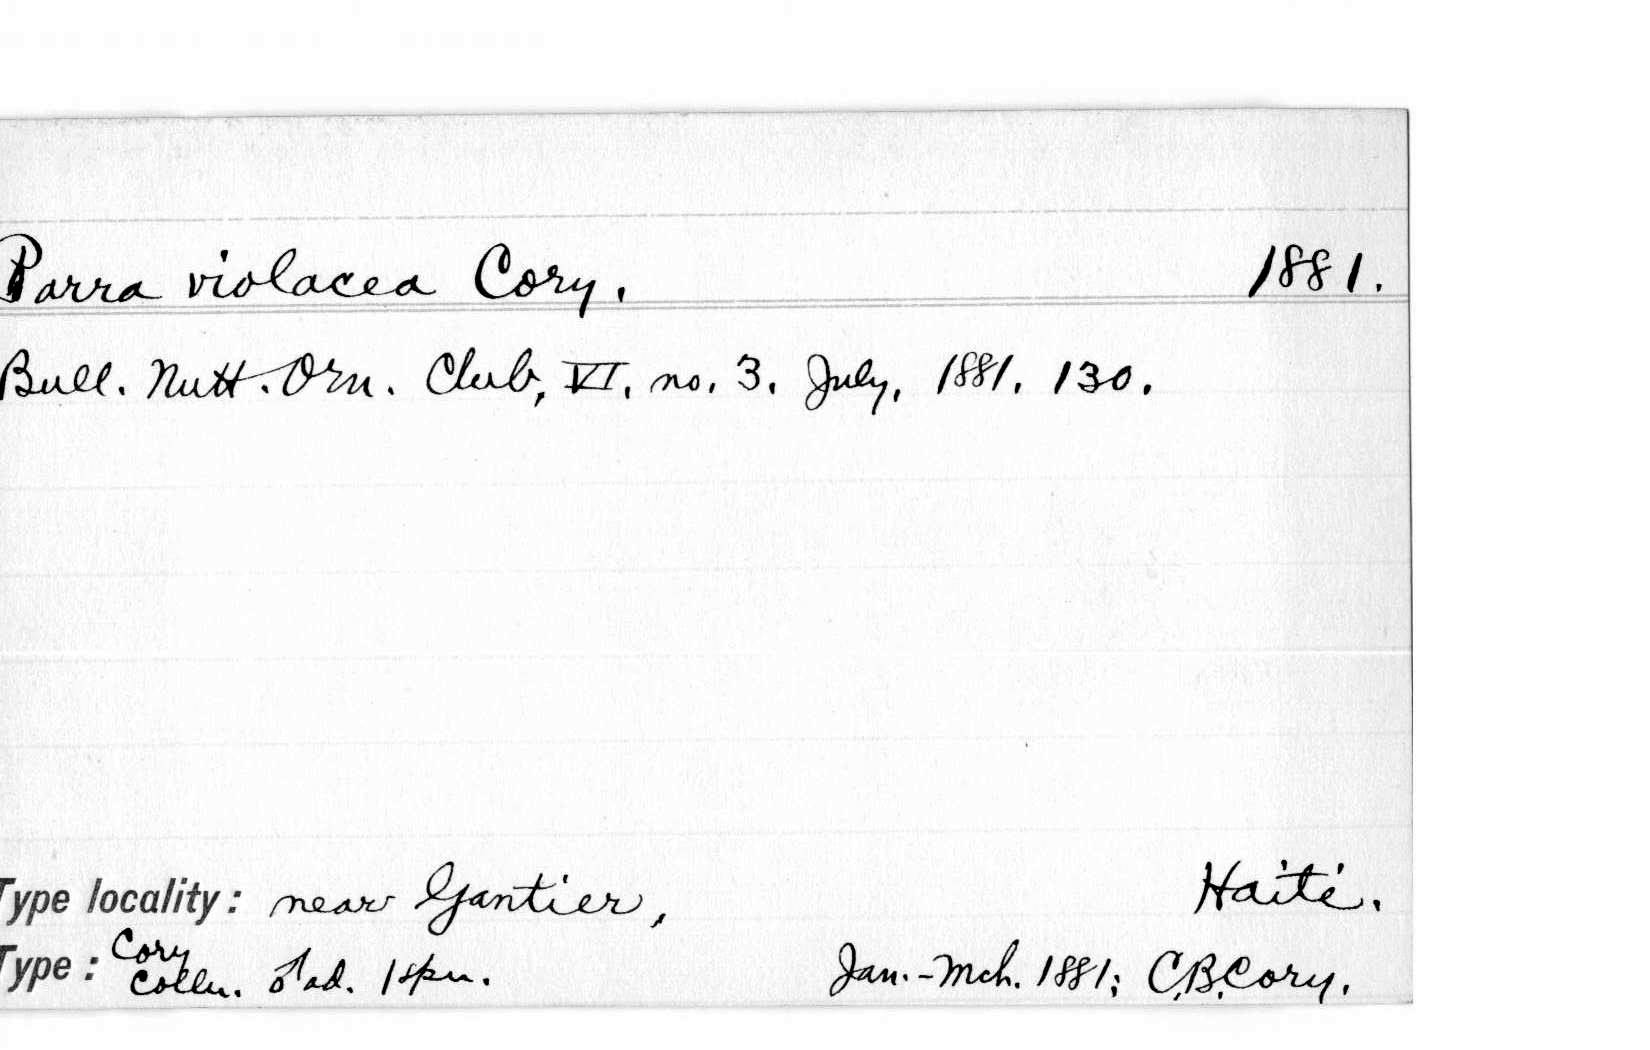 Parra violacea Cory. 1881.
Bull. Nutt. Orn. Club, VI. no. 3. July, 1881. 130.
Type locality: near Gantier, Haiti.
Type: Cory Colln. ♂ ad. 1 spn. Jan.-Mch. 1881; C.B.Cory.